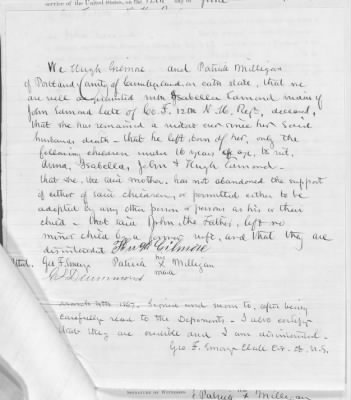 service of the United States, on the 12th day of June
We Hugh Gilmore and Patrick Milligan
of Portland County of Cumberland, on oath state, that we
are well acquainted with Isabella Lamond widow of
John Lamond late of Co. F. 12th N.H. Regt, deceased,
that she has remained a widow ever since her said
husbands death - that he left, born of her, only the
following children under 16 years of age, to wit,
Anna, Isabella, John & Hugh Lamond.
that she, the said mother, has not abandoned the support
of either of said children, or permitted either to be
adopted by any other person or persons as his, or their
child - that said John, the Father, left no
minor child by a former wife, and that they are
disinterested
Hugh Gilmore
Attest. Geo F. Emery
Patrick his X mark Milligan
Drummond
March 9th 1867. Signed and sworn to, after being
carefully read to the Deponents - I also certify
that they are credible and I am disinterested.
Geo. F. Emery Clerk Cir. Ct. U.S.
SIGNATURE OF WITNESSES
Patrick his X Milligan